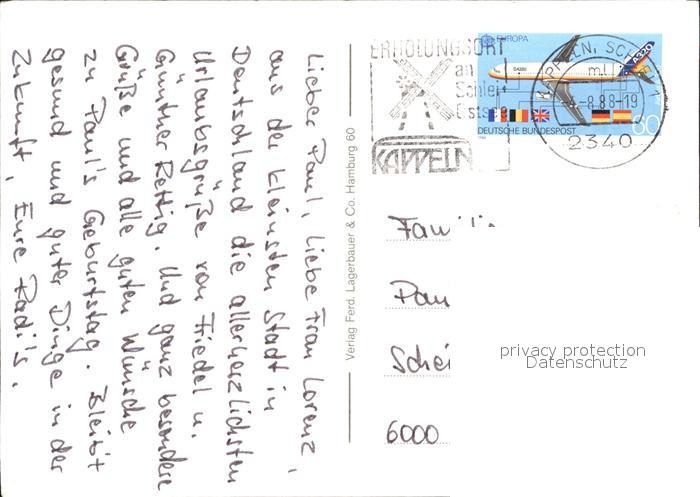 Lieber Paul, liebe Frau Lorenz,
aus der kleinsten Stadt in
Deutschland die allerherzlichsten
Urlaubsgrüße von Friedel u.
Günther Rettig. Und ganz besondere
Grüße und alle guten Wünsche
zu Paul's Geburtstag. Bleibt
gesund und guter Dinge in der
Zukunft, Eure Radi's.
Verlag Ferd. Lagerbauer & Co. Hamburg 60
ERHOLUNGSORT
an
Schlei
Ostsee
KAPPELN
EUROPA
A320
DEUTSCHE BUNDESPOST
60
KAPPELN, SCHLEI 1
-4.-8.88-19
2340
Famili
Pau
Schei
6000
privacy protection
Datenschutz